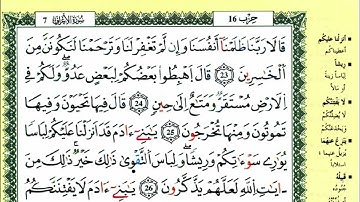 7 سُورَةُ الْأَعْرَافِ
حزب 16
قَالَا رَبَّنَا ظَلَمْنَا أَنفُسَنَا وَإِن لَّمْ تَغْفِرْ لَنَا وَتَرْحَمْنَا لَنَكُونَنَّ مِنَ
اَلْخَٰسِرِينَ 23 قَالَ اَهْبِطُواْ بَعْضُكُمْ لِبَعْضٍ عَدُوٌّ وَلَكُمْ فِي
اِلَارْضِ مُسْتَقَرٌّ وَمَتَٰعٌ اِلَىٰ حِينٍ 24 قَالَ فِيهَا تَحْيَوْنَ وَفِيهَا
تَمُوتُونَ وَمِنْهَا تُخْرَجُونَ 25 يَٰبَنِےٓ ءَادَمَ قَدَ اَنزَلْنَا عَلَيْكُمْ لِبَاسًا
يُوَٰرِے سَوْءَٰتِكُمْ وَرِيشًا وَلِبَاسَ اَلتَّقْوَىٰ ذَٰلِكَ خَيْرٌ ذَٰلِكَ مِنَ
اٰيَٰتِ اِللَّهِ لَعَلَّهُمْ يَذَّكَّرُونَ 26 يَٰبَنِےٓ ءَادَمَ لَا يَفْتِنَنَّكُمُ
أَنزَلْنَا عَلَيْكُمْ
رِيشًا
لَا يَفْتِنَنَّكُمُ
يَنزِعُ عَنْهُمَا
قَبِيلُهُ